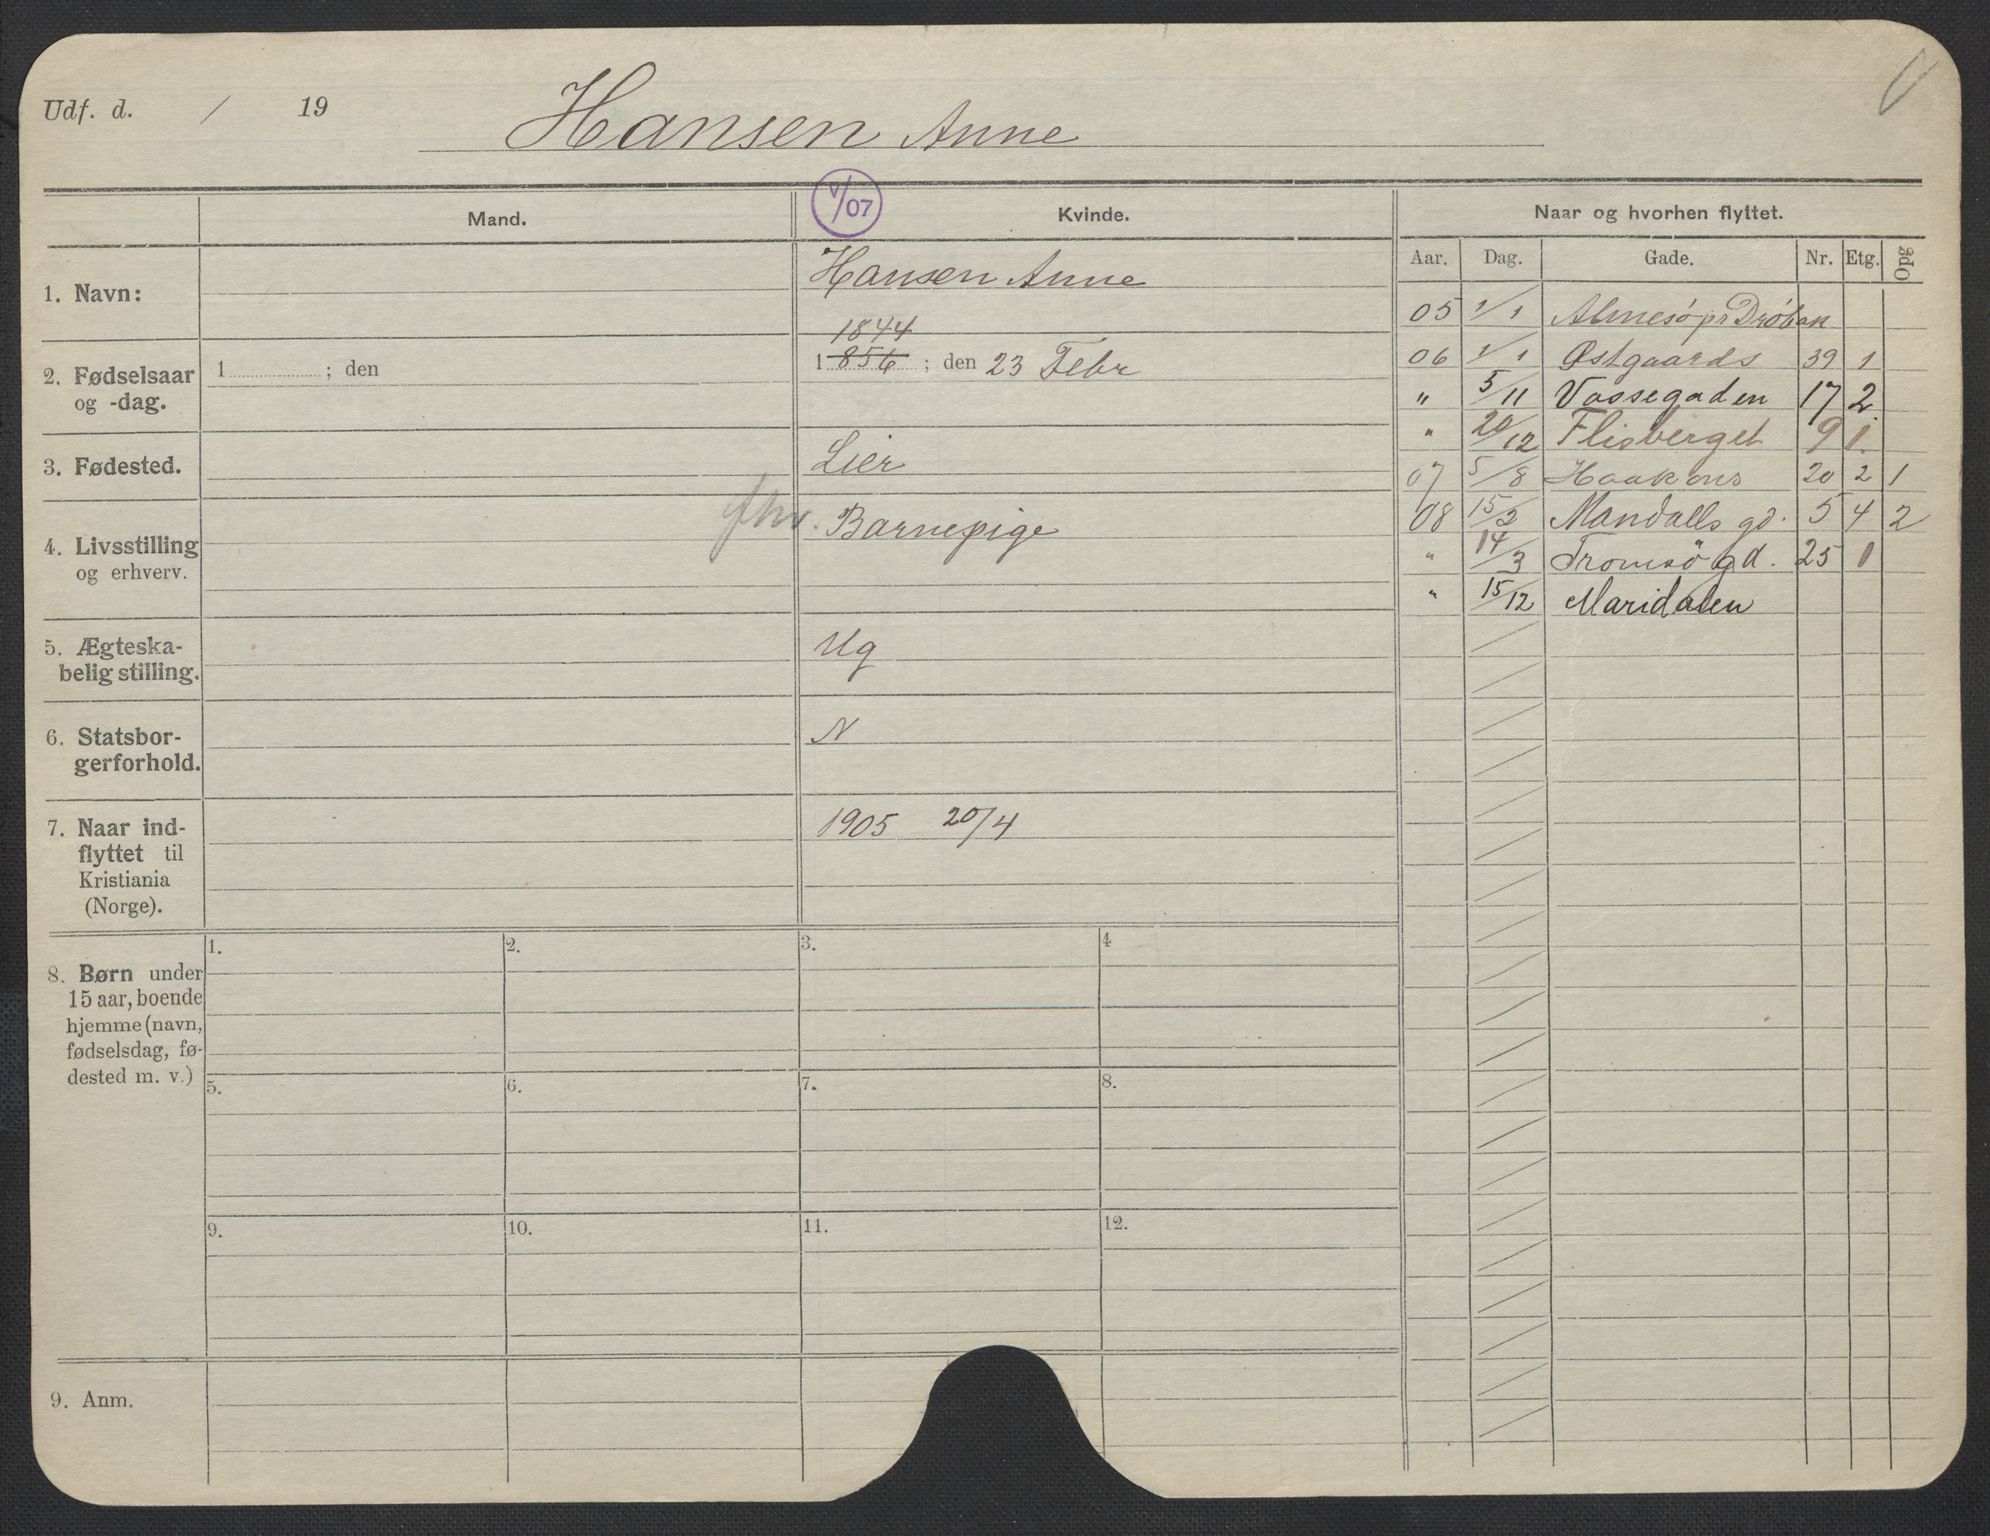 Udf. d. / 19 Hansen Anne
V/07
Mand. Kvinde. Naar og hvorhen flyttet.
Aar. Dag. Gade. Nr. Etg. Opg
1. Navn: Hansen Anne
2. Fødselsaar
og -dag.
1 ; den
1844
1 856 ; den 23 Febr
3. Fødested. Lier
4. Livsstilling
og erhverv.
Barnepige
5. Ægteska-
belig stilling.
Ug
6. Statsbor-
gerforhold.
N
7. Naar ind-
flyttet til
Kristiania
(Norge).
1905 20/4
05 1/1 pr Drøbak
06 1/1 Østgaards 39 1
" 5/11 Vossegaden 17 2
" 20/12 Flisberget 9 1.
07 5/8 Haakons 20 2 1
08 15/2 Mandalls gd. 5 4 2
" 14/3 Tromsö gd. 25 1
" 15/12 Maridalen
8. Børn under
15 aar, boende
hjemme (navn,
fødselsdag, fø-
dested m. v.)
1. 2. 3. 4
5. 6. 7. 8.
9. 10. 11. 12.
9. Anm.